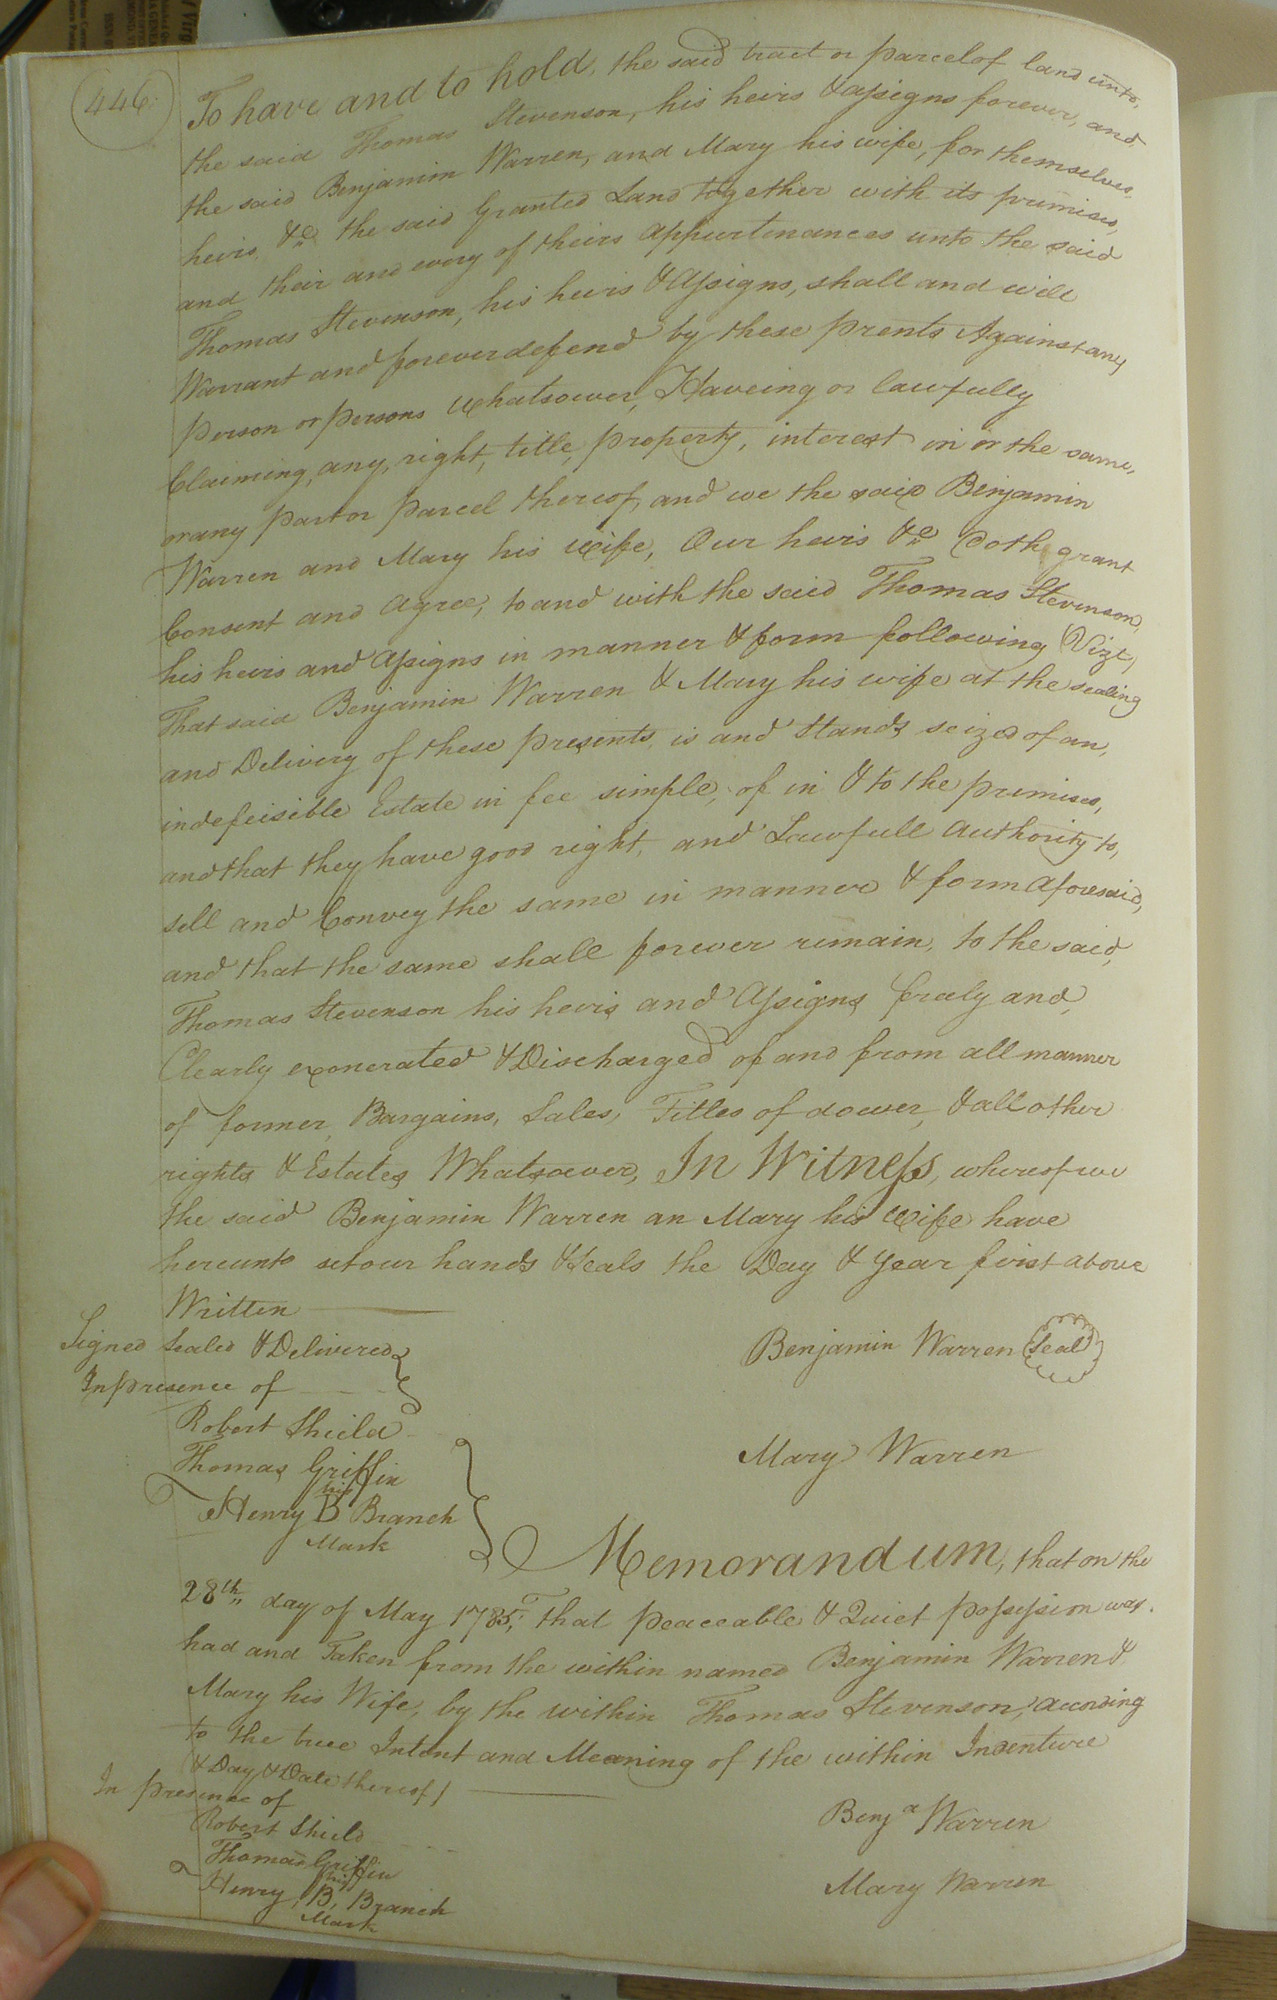 446
To have and to hold, the said tract or parcel of land unto,
the said Thomas Stevenson, his heirs & assigns forever, and
the said Benjamin Warren, and Mary his wife, for themselves,
heirs, &c. the said Granted Land together with its premises,
and their and every of theirs appurtinances unto the said
Thomas Stevenson, his heirs & Assigns, shall and will
Warrant and forever defend by these prents Against any
Person or persons Whatsoever, Haveing or lawfully
Claiming, any, right, title, property, interest in or the same,
or any part or parcel thereof, and we the said Benjamin
Warren and Mary his Wife, Our heirs &c. Doth grant
Consent and Agree, to and with the said Thomas Stevenson,
his heirs and Assigns in manner & form following (Vizt,)
That said Benjamin Warren & Mary his wife at the sealing
and Delivery of these presents, is and Stands seized of an,
indefeisible Estate in fee simple, of in & to the premises,
and that they have good right, and Lawfull Authority to,
sell and Convey the same in manner & form aforesaid,
and that the same shall forever remain, to the said,
Thomas Stevenson his heris and Assigns freely and,
Clearly exonerated & Discharged of and from all manner
of former, Bargains, Sales, Titles of dower, & all other
rights & Estates Whatsoever, In Witness, whereof we
the said Benjamin Warren an Mary his Wife have
hereunto set our hands & Seals the Day & year first above
Written
Signed Sealed & Delivered
In presence of
Benjamin Warren Seal
Robert Shield
Thomas Griffin
Mary Warren
his
Henry B Branch
Mark
Memorandum, that on the
28th day of May 1785, That peaceable & Quiet possession was
had and Taken from the within named Benjamin Warren &
Mary his Wife, by the within Thomas Stevenson, according
to the true Intent and Meaning of the within Indenture
& Day & Date thereof
In presence of
Robert Shield
Benja Warren
Thomas Griffin
his
Henry B, Branch
Mary Warren
Mark